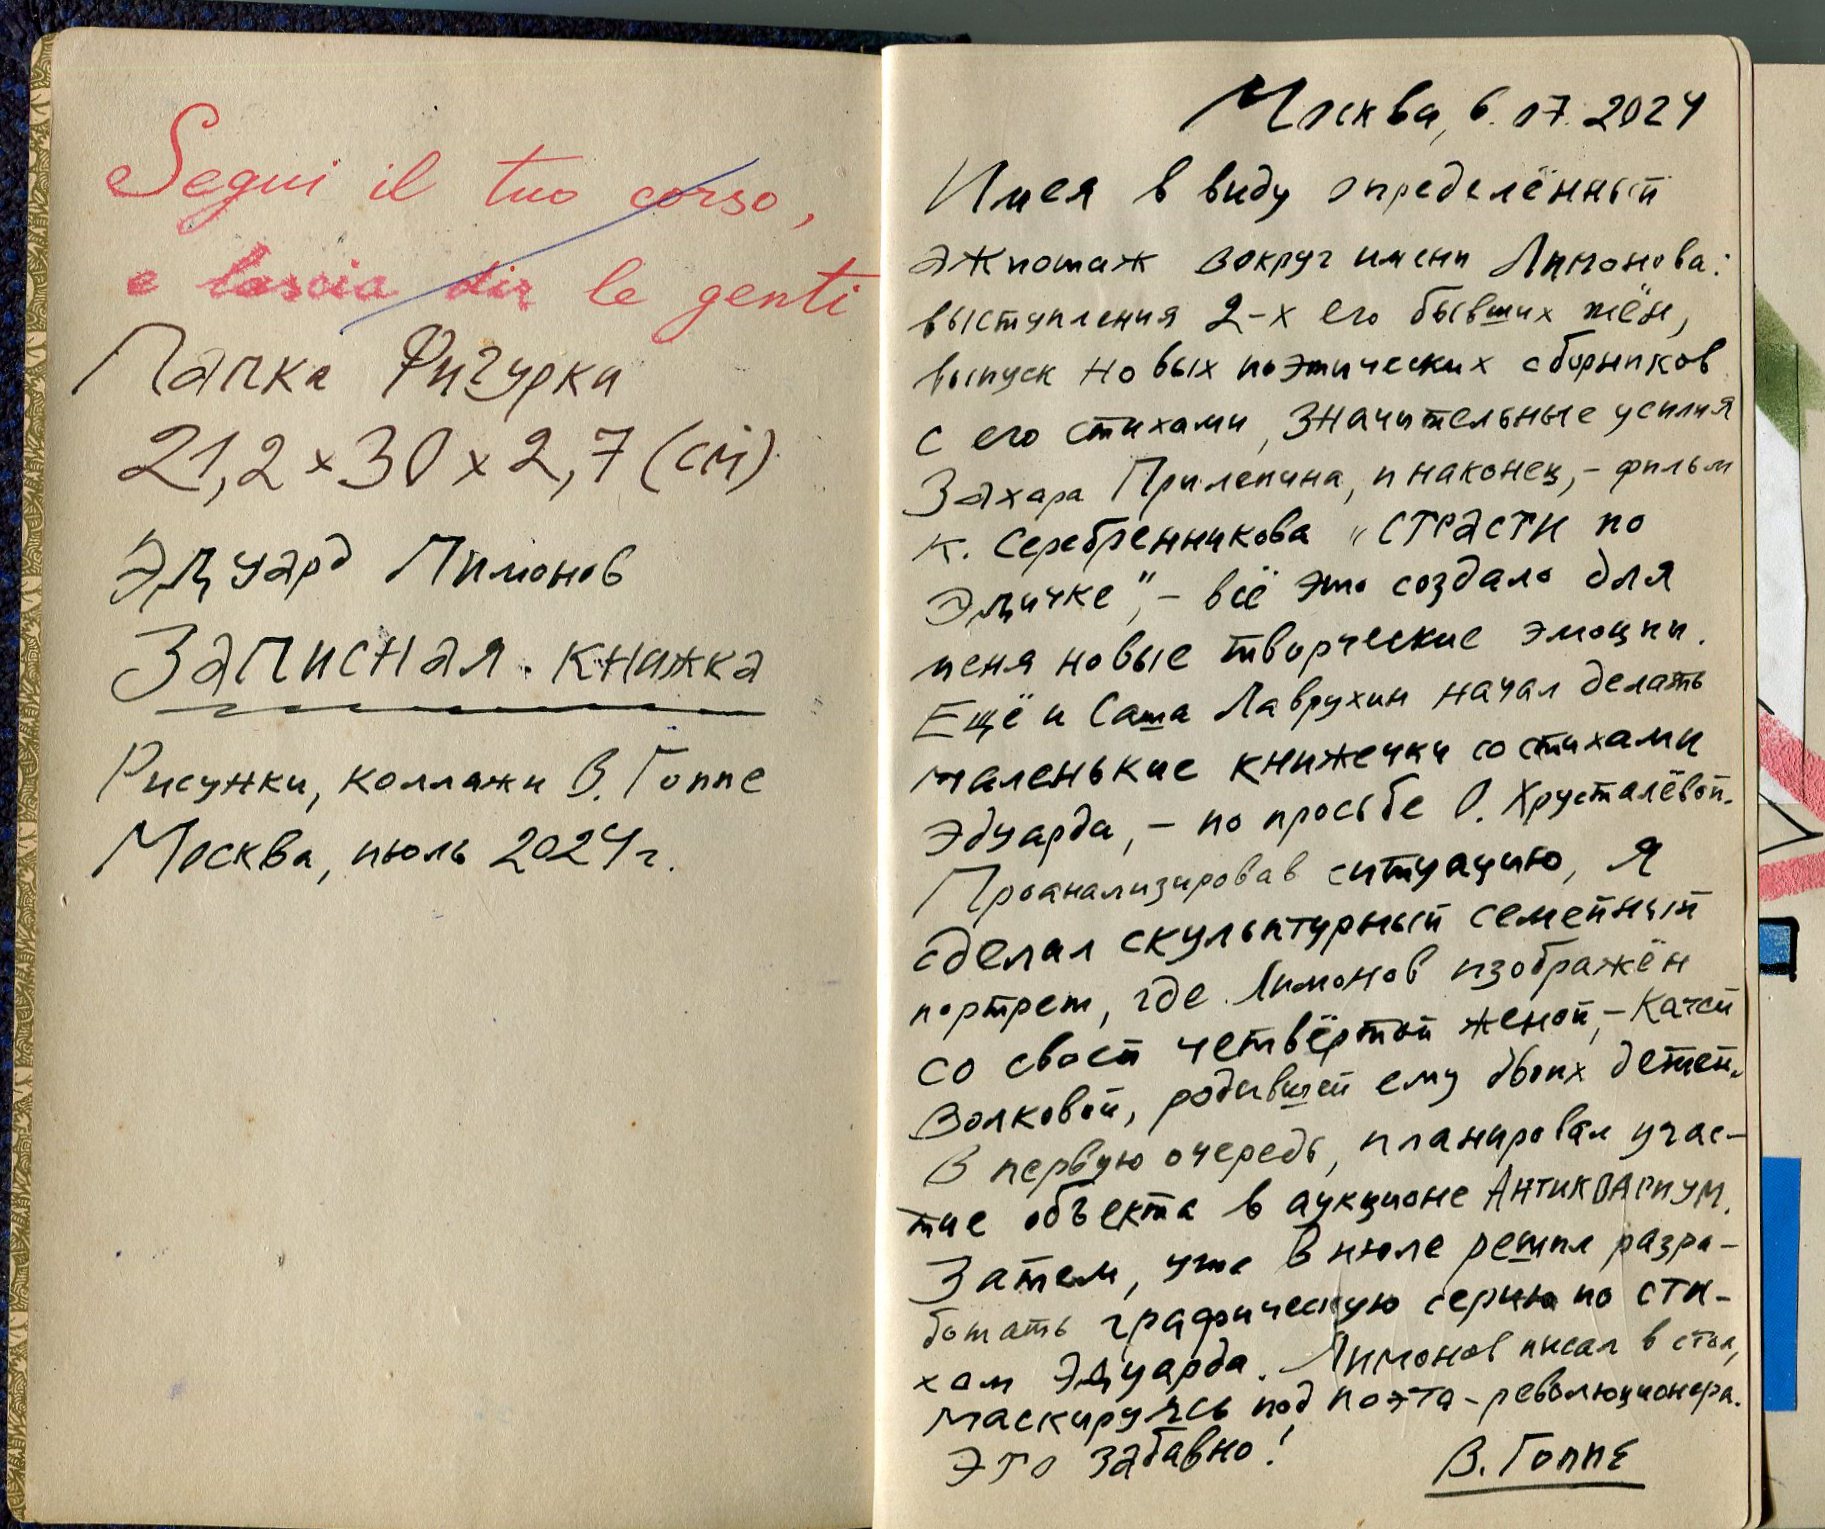 Segui il tuo corso,
e lascia dir le genti
Папка Фигурки
21,2 х 30 х 2,7 (см)
Эдуард Лимонов
Записная книжка
Рисунки, коллажи В. Гоппе
Москва, июль 2024 г.
Москва, 6.07.2024
Имея в виду определённый
эжиотаж вокруг имени Лимонова:
выступления 2-х его бывших жён,
выпуск новых поэтических сборников
с его стихами, значительные усилия
Захара Прилепина, и наконец, – фильм
К. Серебренникова „Страсти по
Эдичке", – всё это создало для
меня новые творческие эмоции.
Ещё и Саша Лаврухин начал делать
маленькие книжечки со стихами
Эдуарда, – по просьбе О. Хрусталёвой.
Проанализировав ситуацию, я
сделал скульптурный семейный
портрет, где Лимонов изображён
со своей четвёртой женой, – Катей
Волковой, родившей ему двоих детей.
В первую очередь, планировал учас-
тие объекта в аукционе Антиквариум.
Затем, уже в июле решил разра-
ботать графическую серию по сти-
хам Эдуарда. Лимонов писал в стол,
маскируясь под поэта-революционера.
Это забавно!
В. Гоппе